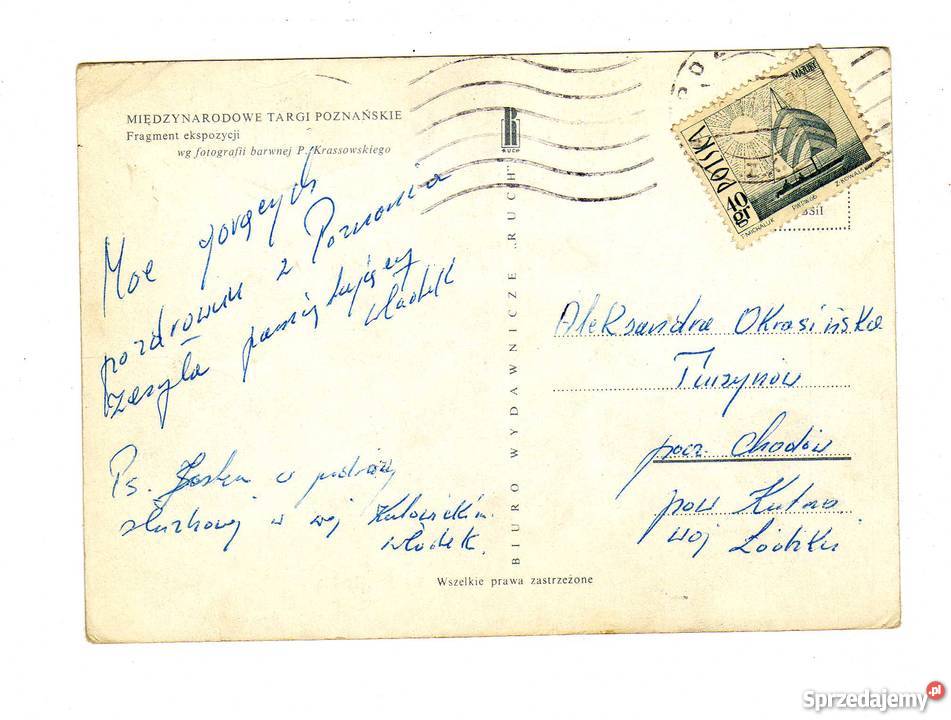 MIĘDZYNARODOWE TARGI POZNAŃSKIE
Fragment ekspozycji
wg fotografii barwnej P. Krassowskiego
Moc gorących
pozdrowień z Poznania
zasyła pamiętający
Władek
Ps. w podróży
służbowej w woj
Władek.
BIURO WYDAWNICZE „RUCH”
RUCH
Wszelkie prawa zastrzeżone
MAZURY
POLSKA
40 gr
T. MICHALIK
Z. KOWALSKI
Aleksandra Okrasińska
pocz. Chodów
pow Kutno
woj Łódzkie
Sprzedajemy.pl